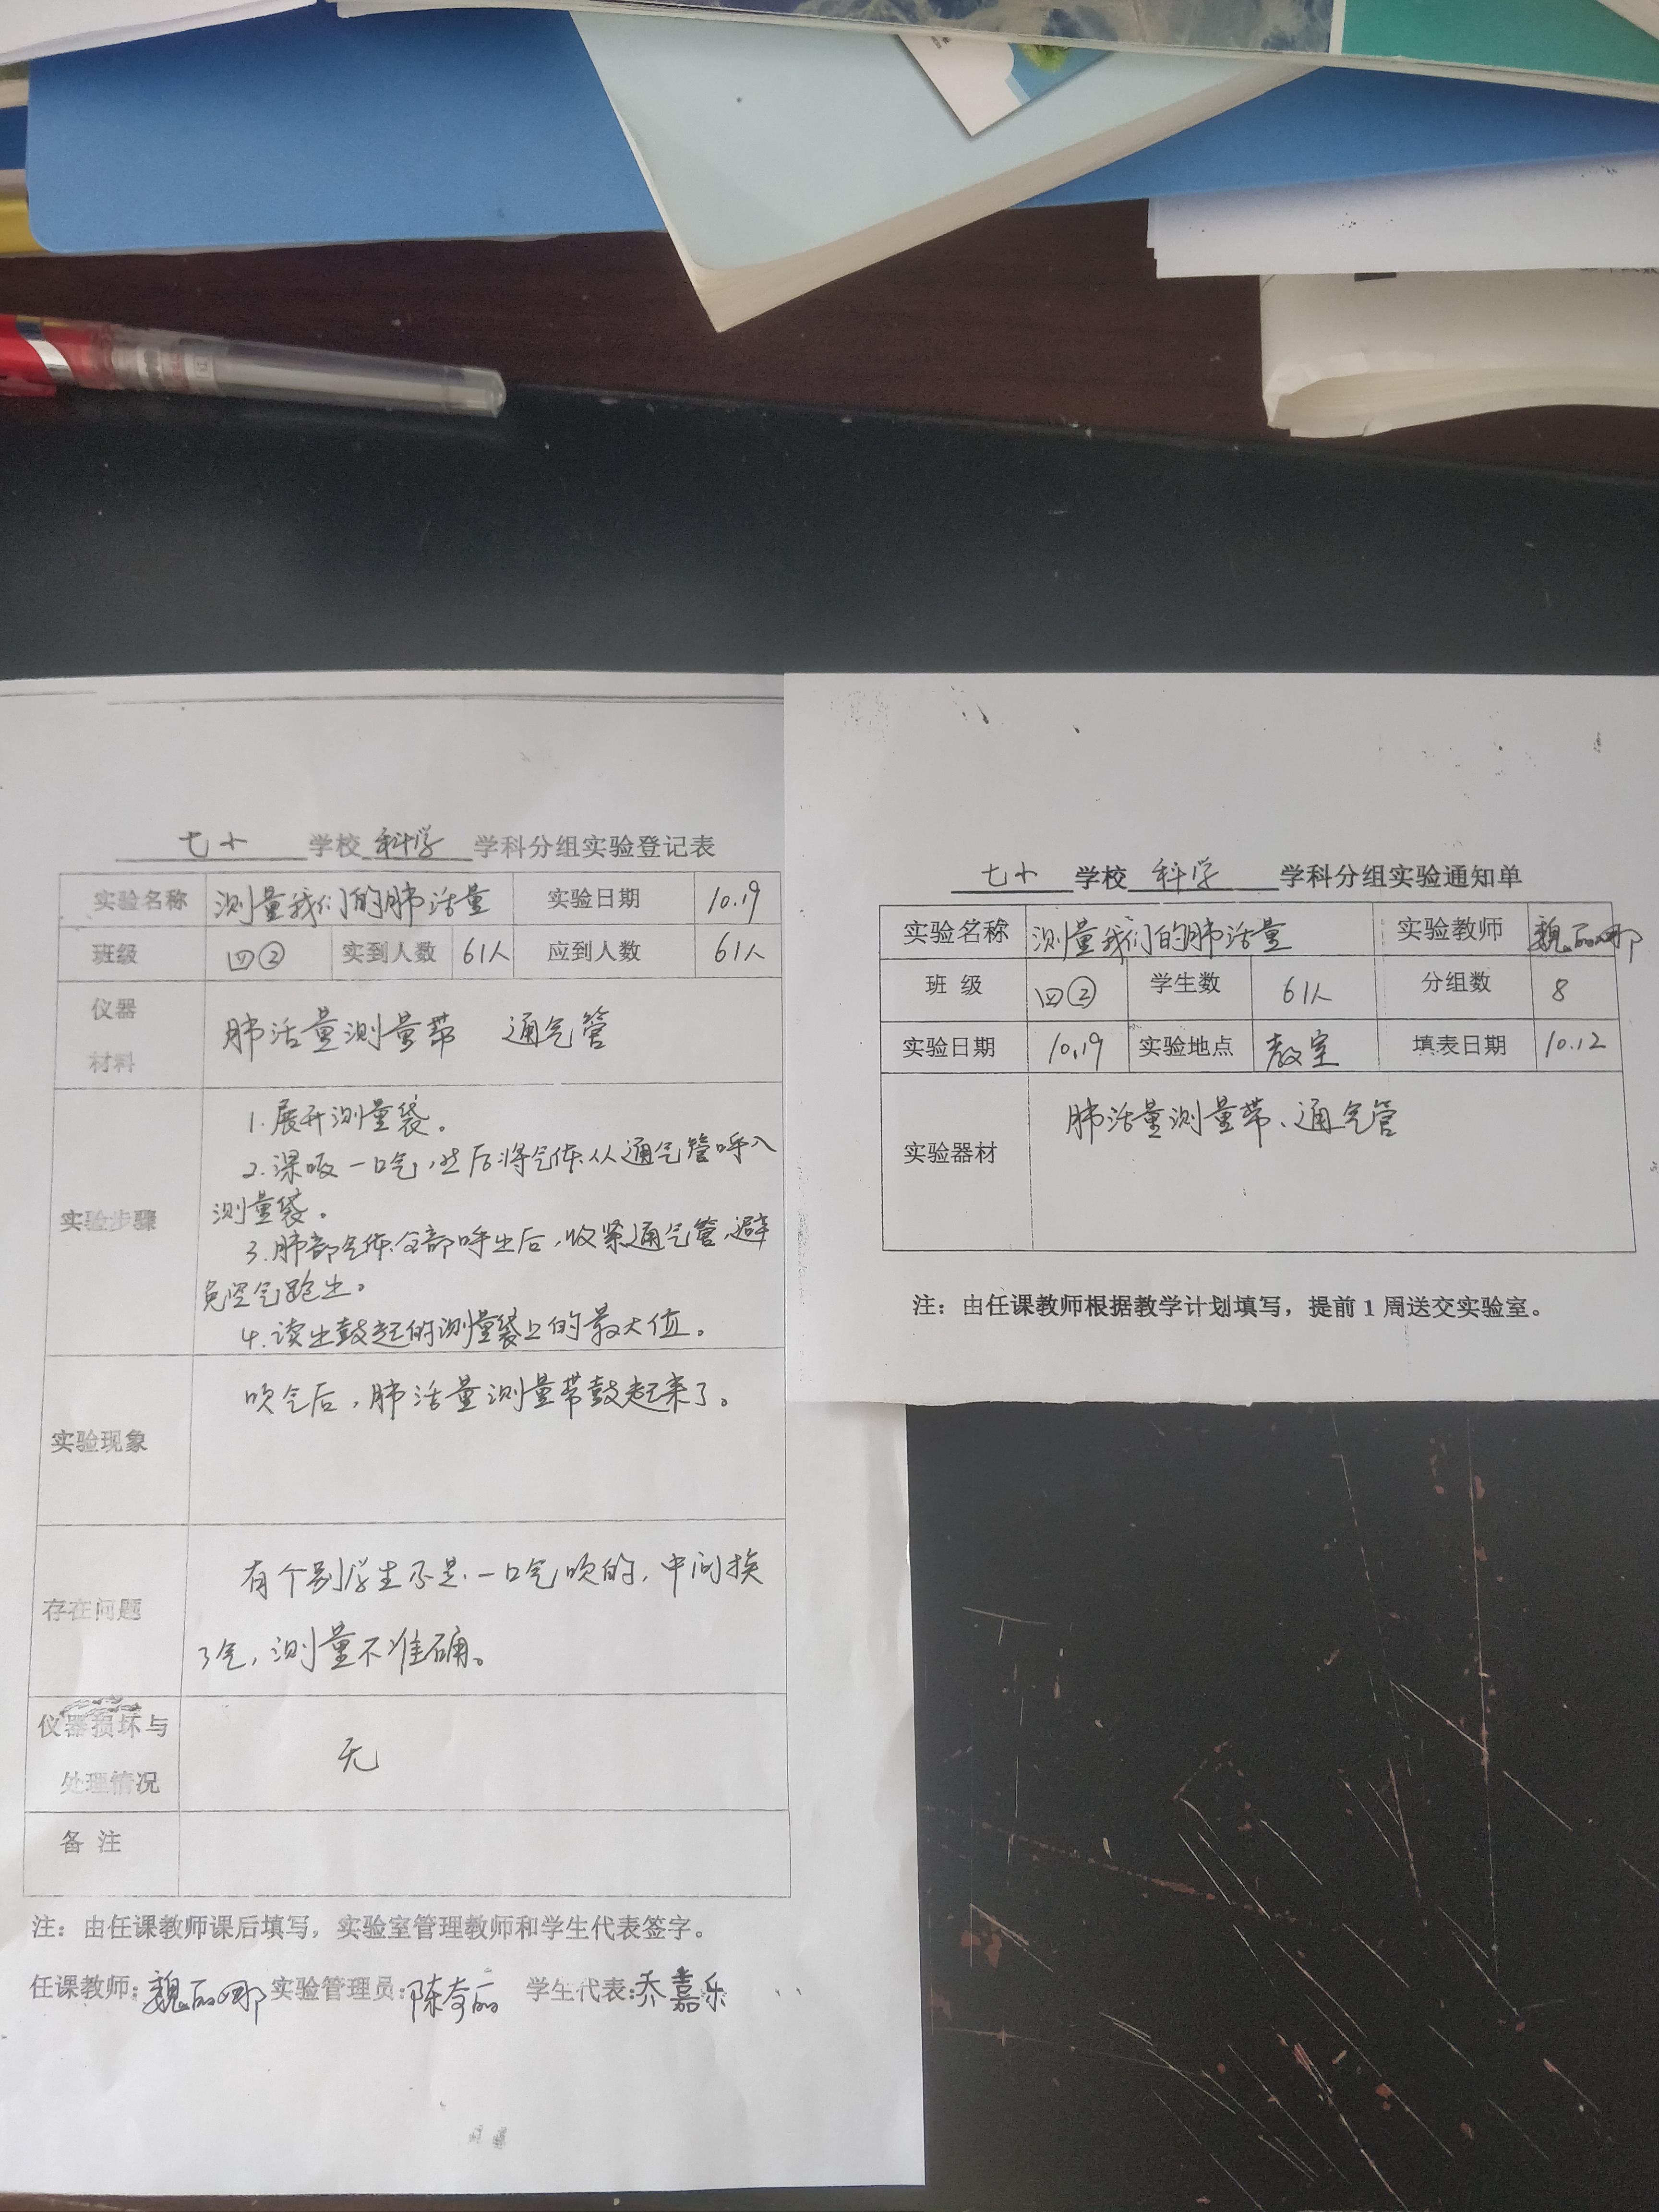 七小 学校 科学 学科分组实验登记表
实验名称 测量我们的肺活量 实验日期 10.19
班级 四② 实到人数 61人 应到人数 61人
仪器
材料
肺活量测量带 通气管
实验步骤
1.展开测量袋。
2.深吸一口气,然后将气体从通气管呼入
测量袋。
3.肺部气体全部呼出后,收紧通气管,避
免空气跑出。
4.读出鼓起的测量袋上的最大值。
实验现象
吹气后,肺活量测量带鼓起来了。
存在问题
有个别学生不是一口气吹的,中间换
了气,测量不准确。
仪器损坏与
处理情况
无
备 注
注:由任课教师课后填写,实验室管理教师和学生代表签字。
任课教师:魏丽娜 实验管理员:陈奇丽 学生代表:乔嘉乐
七小 学校 科学 学科分组实验通知单
实验名称 测量我们的肺活量 实验教师 魏丽娜
班 级 四② 学生数 61人 分组数 8
实验日期 10.19 实验地点 教室 填表日期 10.12
实验器材 肺活量测量带、通气管
注:由任课教师根据教学计划填写,提前1周送交实验室。